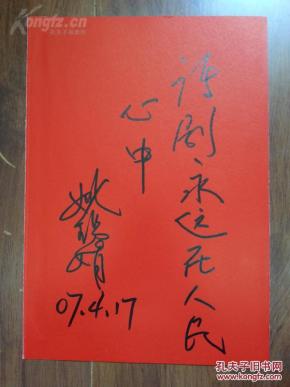 话剧永远在人民
心中
姚锡娟
07.4.17
Kongfz.com
孔夫子旧书网